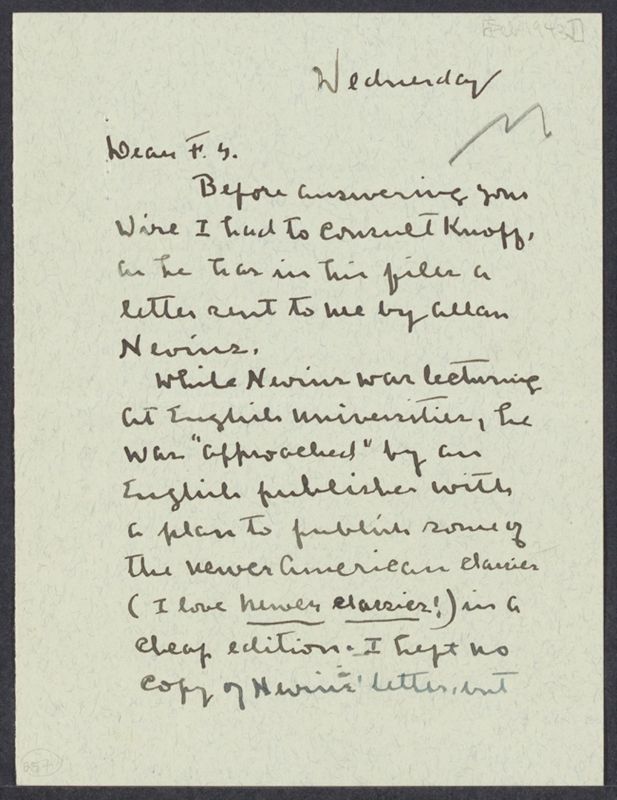 Feb 1943
Wednesday
Dear F. G.
Before answering your
wire I had to consult Knopf,
as he has in his files a
letter sent to me by Allan
Nevins.
While Nevins was lecturing
at English universities, he
was "approached" by an
English publisher with
a plan to publish some of
the newer American classics
(I love newer classics!) in a
cheap edition. I kept no
copy of Nevins' letter, but